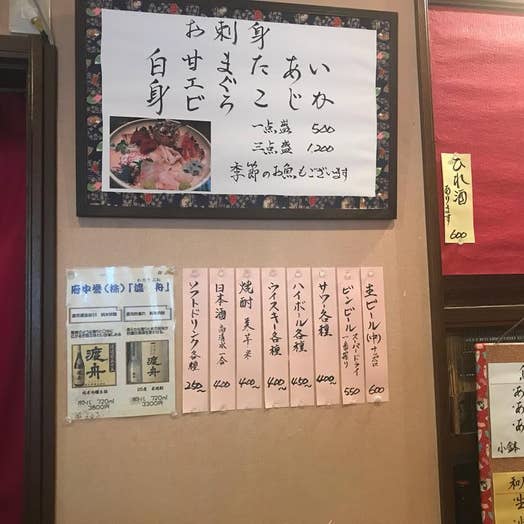 お刺身
いか
あじ
たこ
まぐろ
甘エビ
白身
一点盛 500
三点盛 1,200
季節のお魚もございます
ひれ酒
あります
600
生ビール(中)
600
ビンビール スーパードライ
一番搾り
550
サワー各種
400〜
ハイボール各種
450〜
ウイスキー各種
400〜
焼酎 麦 芋 米
400〜
日本酒
一合
400
ソフトドリンク各種
250〜
府中誉(株)「渡舟」
渡舟
720ml
3800円
渡舟
720ml
3300円
小鉢